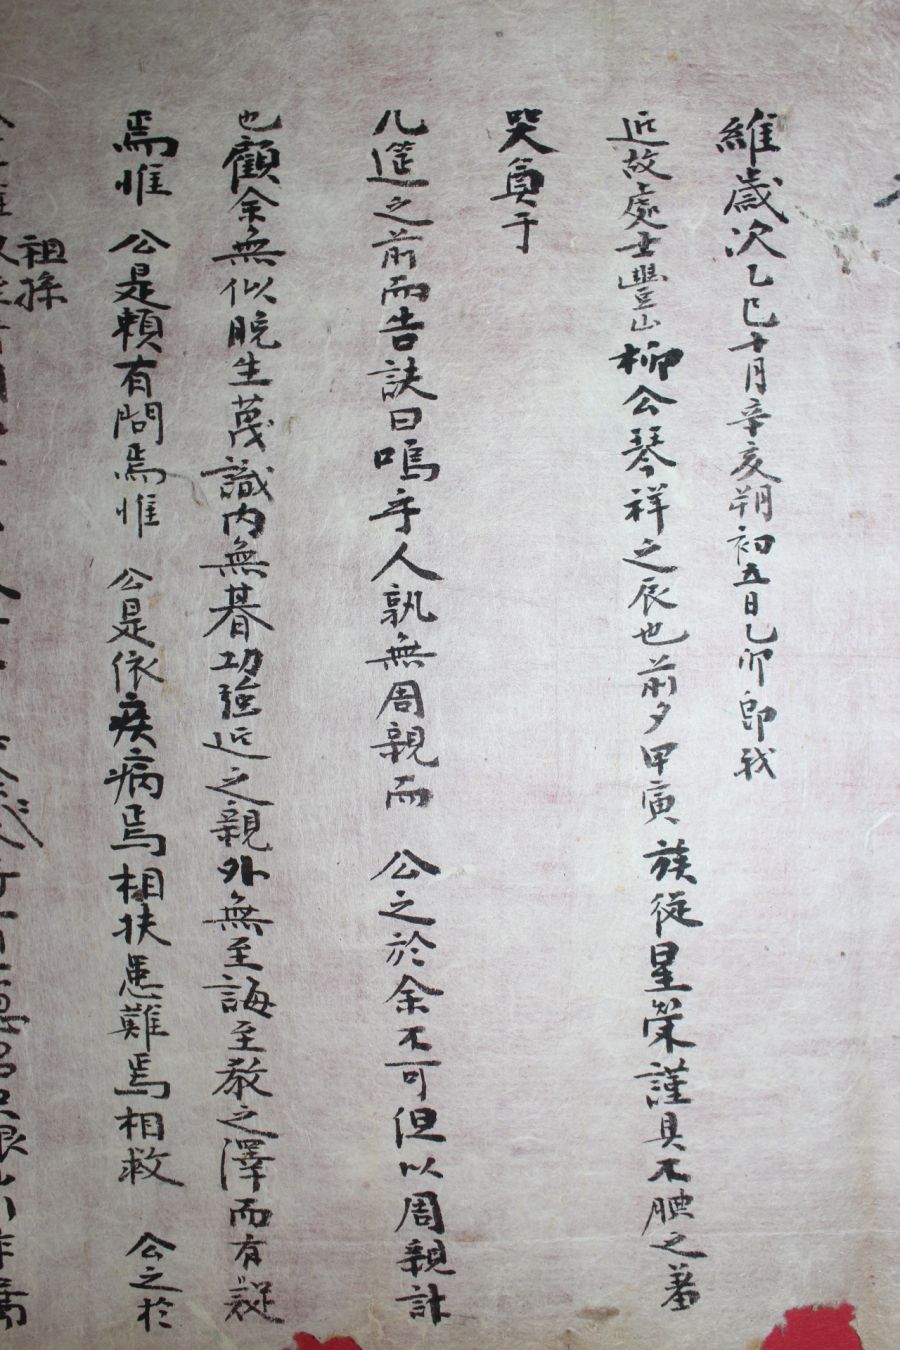 維歲次乙巳十月辛亥朔初五日乙卯卽我
近故處士豐山柳公琴祥之辰也前夕甲寅族從星榮謹具不腆之羞
哭奠于
几筵之前而告訣曰嗚乎人孰無周親而 公之於余不可但以周親計
也顧余無似晩生蔑識內無朞功強近之親外無至誨至敎之澤而有疑
焉惟 公是賴有問焉惟 公是依疾病焉相扶患難焉相救 公之於
祖孫